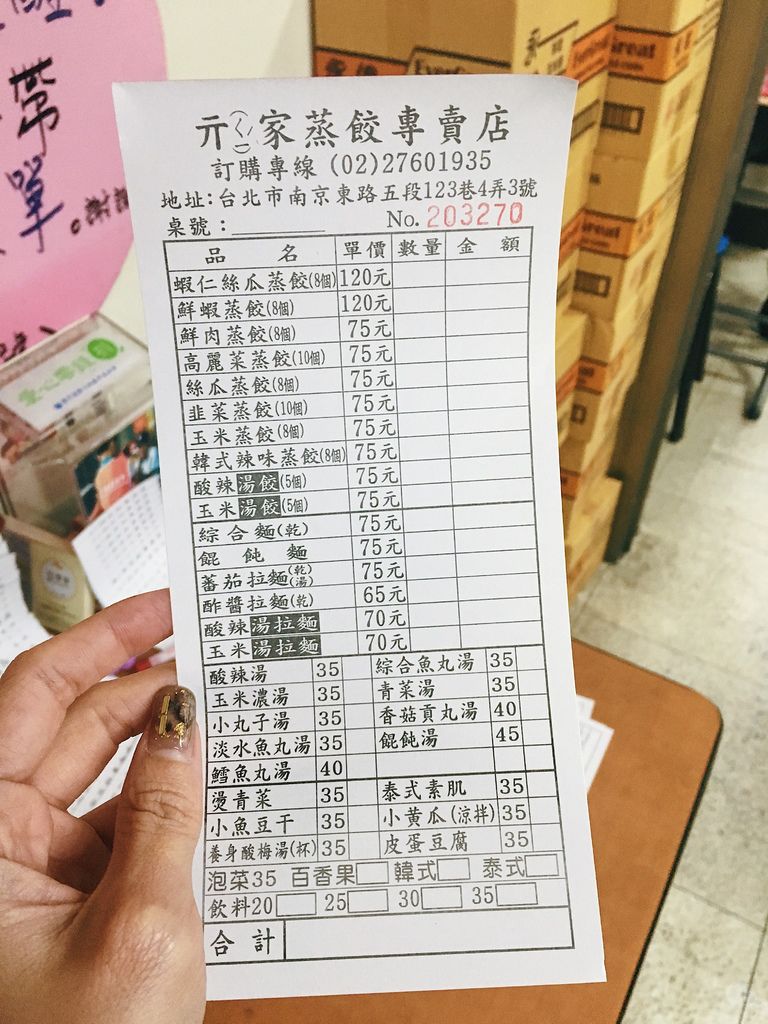 帶
單
。謝謝
Great
亓家蒸餃專賣店
訂購專線 (02)27601935
地址:台北市南京東路五段123巷4弄3號
桌號: No. 203270
品名 單價 數量 金額
蝦仁絲瓜蒸餃(8個) 120元
鮮蝦蒸餃(8個) 120元
鮮肉蒸餃(8個) 75元
高麗菜蒸餃(10個) 75元
絲瓜蒸餃(8個) 75元
韭菜蒸餃(10個) 75元
玉米蒸餃(8個) 75元
韓式辣味蒸餃(8個) 75元
酸辣湯餃(5個) 75元
玉米湯餃(5個) 75元
綜合麵(乾) 75元
餛飩麵 75元
蕃茄拉麵(乾)(湯) 75元
酢醬拉麵(乾) 65元
酸辣湯拉麵 70元
玉米湯拉麵 70元
酸辣湯 35 綜合魚丸湯 35
玉米濃湯 35 青菜湯 35
小丸子湯 35 香菇貢丸湯 40
淡水魚丸湯 35 餛飩湯 45
鱈魚丸湯 40
燙青菜 35 泰式素肌 35
小魚豆干 35 小黃瓜(涼拌) 35
養身酸梅湯(杯) 35 皮蛋豆腐 35
泡菜35 百香果 韓式 泰式
飲料20 25 30 35
合計